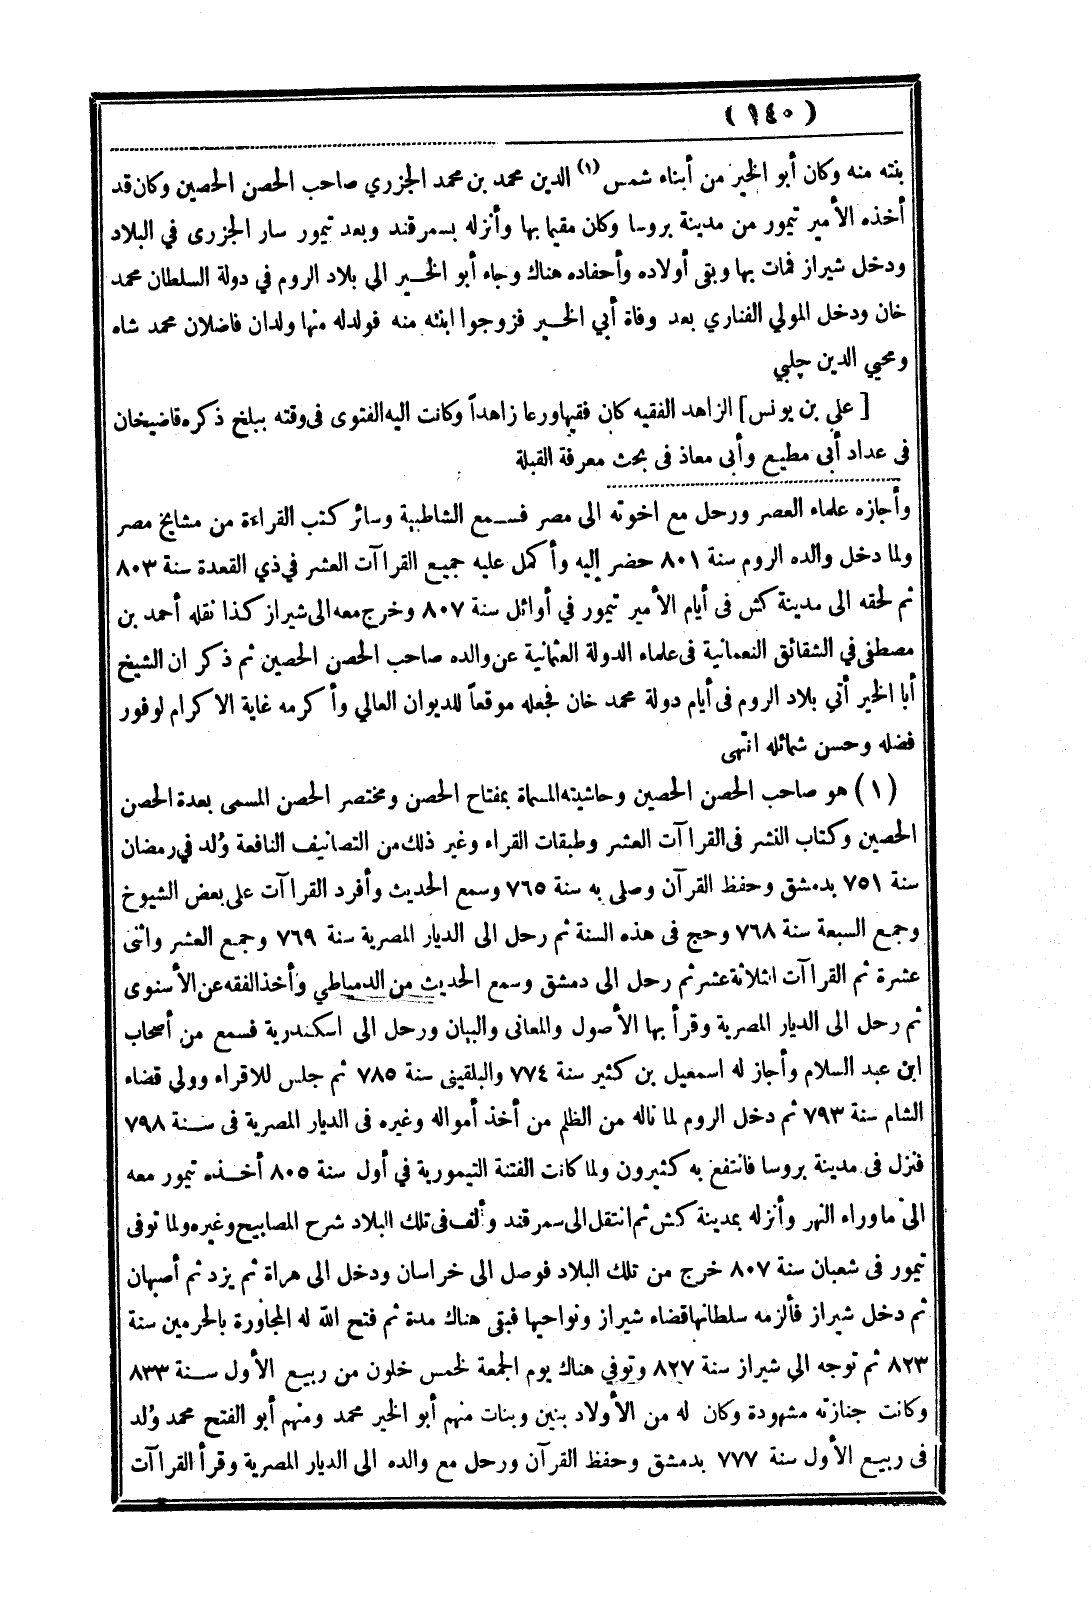 (١٤٠)
بنته منه وكان أبو الخير من أبناء شمس (١) الدين محمد بن محمد الجزري صاحب الحصن الحصين وكان قد
أخذه الأمير تيمور من مدينة بروسا وكان مقيما بها وأنزله بسمرقند وبعد تيمور سار الجزرى في البلاد
ودخل شيراز فمات بها وبقى أولاده وأحفاده هناك وجاء أبو الخير الى بلاد الروم في دولة السلطان محمد
خان ودخل المولي الفناري بعد وفاة أبي الخير فزوجوا ابنته منه فولدله منها ولدان فاضلان محمد شاه
ومحيي الدين چلبي
[ علي بن يونس] الزاهد الفقيه كان فقيها ورعا زاهداً وكانت اليه الفتوى فى وقته ببلخ ذكره قاضيخان
فى عداد أبى مطيع وأبى معاذ فى بحث معرفة القبلة
وأجازه علماء العصر ورحل مع اخوته الى مصر فسمع الشاطبية وسائر كتب القراءة من مشايخ مصر
ولما دخل والده الروم سنة ٨٠١ حضر إليه وأكمل عليه جميع القراآت العشر في ذي القعدة سنة ٨٠٣
ثم لحقه الى مدينة كش فى أيام الأمير تيمور في أوائل سنة ٨٠٧ وخرج معه الى شيراز كذا نقله أحمد بن
مصطفى في الشقائق النعمانية فى علماء الدولة العثمانية عن والده صاحب الحصن الحصين ثم ذكر ان الشيخ
أبا الخير أتي بلاد الروم فى أيام دولة محمد خان فجعله موقعاً للديوان العالي وأكرمه غاية الاكرام لوفور
فضله وحسن شمائله انتهى
(١) هو صاحب الحصن الحصين وحاشيته المسماة بمفتاح الحصن ومختصر الحصن المسمى بعدة الحصن
الحصين وكتاب النشر فى القراآت العشر وطبقات القراء وغير ذلك من التصانيف النافعة وُلد في رمضان
سنة ٧٥١ بدمشق وحفظ القرآن وصلى به سنة ٧٦٥ وسمع الحديث وأفرد القراآت على بعض الشيوخ
وجمع السبعة سنة ٧٦٨ وحج فى هذه السنة ثم رحل الى الديار المصرية سنة ٧٦٩ وجمع العشر واثنى
عشرة ثم القراآت الثلاثة عشر ثم رحل الى دمشق وسمع الحديث من الدمياطي وأخذ الفقه عن الأسنوى
ثم رحل الى الديار المصرية وقرأ بها الأصول والمعانى والبيان ورحل الى اسكندرية فسمع من أصحاب
ابن عبد السلام وأجاز له اسمعيل بن كثير سنة ٧٧٤ والبلقينى سنة ٧٨٥ ثم جلس للاقراء وولي قضاء
الشام سنة ٧٩٣ ثم دخل الروم لما ناله من الظلم من أخذ أمواله وغيره فى الديار المصرية فى سنة ٧٩٨
فنزل فى مدينة بروسا فانتفع به كثيرون ولما كانت الفتنة التيمورية في أول سنة ٨٠٥ أخذه تيمور معه
الى ماوراء النهر وأنزله بمدينة كش ثم انتقل الى سمرقند وألف فى تلك البلاد شرح المصابيح وغيره ولما توفى
تيمور فى شعبان سنة ٨٠٧ خرج من تلك البلاد فوصل الى خراسان ودخل الى هراة ثم يزد ثم أصبهان
ثم دخل شيراز فألزمه سلطانها قضاء شيراز ونواحيها فبقى هناك مدة ثم فتح الله له المجاورة بالحرمين سنة
٨٢٣ ثم توجه الي شيراز سنة ٨٢٧ وتوفي هناك يوم الجمعة لخمس خلون من ربيع الأول سنة ٨٣٣
وكانت جنازته مشهودة وكان له من الأولاد بنين وبنات منهم أبو الخير محمد ومنهم أبو الفتح محمد وُلد
فى ربيع الأول سنة ٧٧٧ بدمشق وحفظ القرآن ورحل مع والده الى الديار المصرية وقرأ القراآت